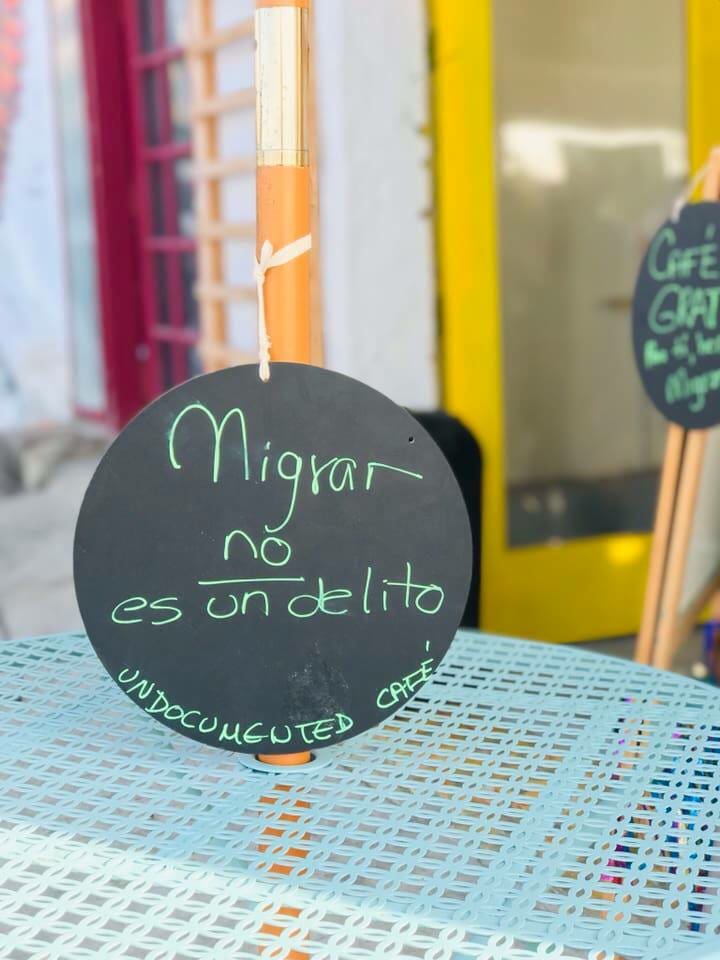 Migrar
no
es un delito
UNDOCUMENTED CAFÉ
CAFÉ
Migrar